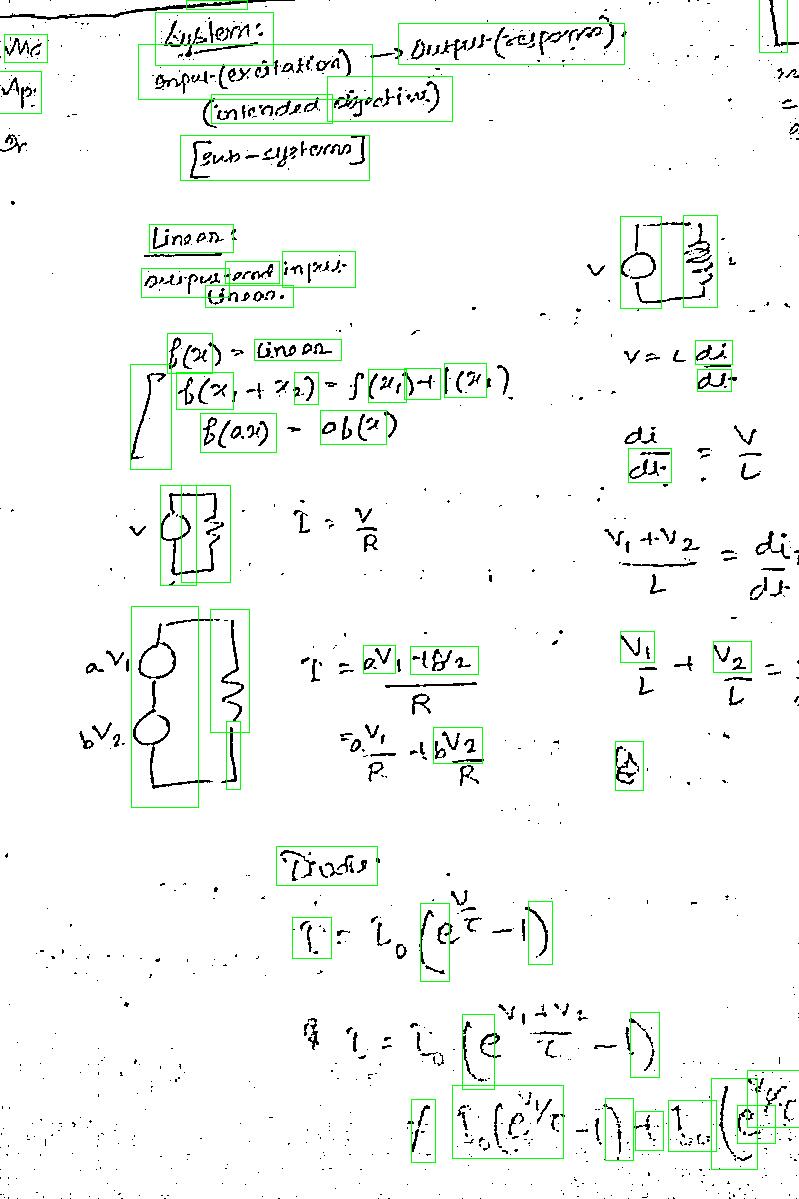 System:
Input (excitation) → Output (response).
(intended objective)
[sub-systems]
Linear:
Output and input
Linear.
f(x) = Linear
f(x₁ + x₂) = f(x₁) + f(x₂)
f(ax) = a f(x)
V
I = V/R
aV₁
bV₂
I = (aV₁ + bV₂)/R
= aV₁/R + bV₂/R
V
L
V = L di/dt
di/dt = V/L
(V₁ + V₂)/L = di/dt
V₁/L + V₂/L =
Diode
I = I₀ (e^{V/τ} - 1)
I = I₀ (e^{(V₁ + V₂)/τ} - 1)
≠ I₀ (e^{V₁/τ} - 1) + I₀ (e^{V₂/τ}